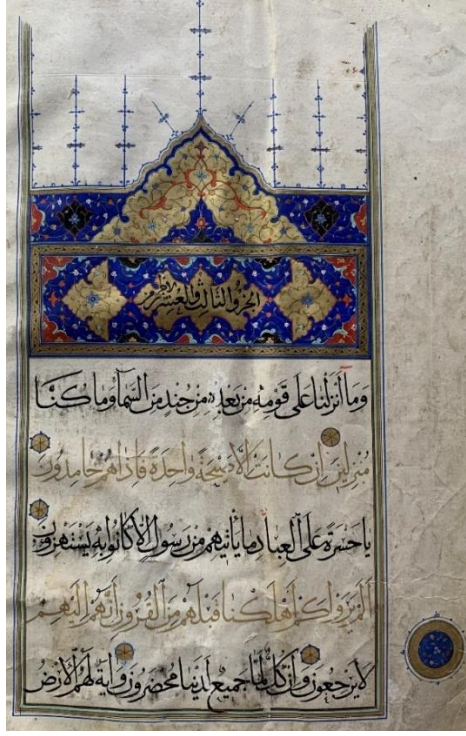 الجزو الثالث والعشرين
وما أنزلنا على قومه من بعده من جند من السماء وما كنا
منزلين إن كانت إلا صيحة واحدة فإذا هم خامدون
يا حسرة على العباد ما يأتيهم من رسول إلا كانوا به يستهزون
ألم يروا كم أهلكنا قبلهم من القرون أنهم إليهم
لا يرجعون وإن كل لما جميع لدينا محضرون وآية لهم الأرض